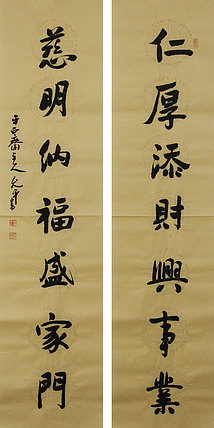 仁厚添財興事業
慈明納福盛家門